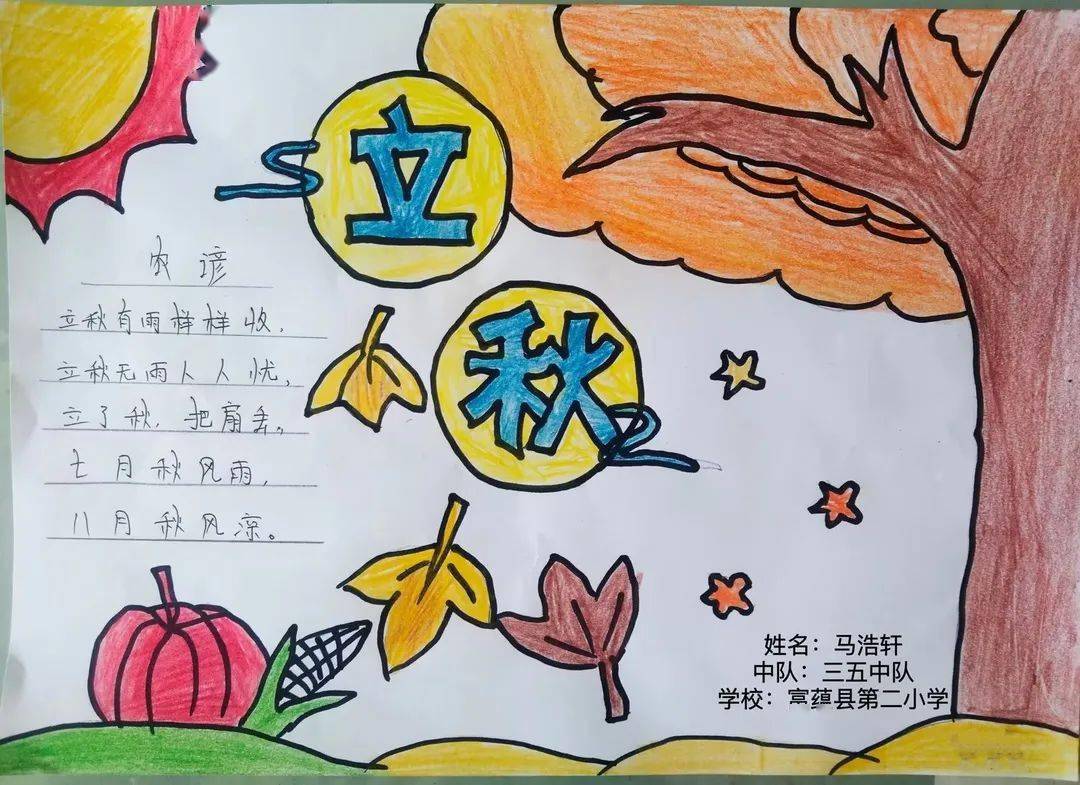 立
秋
农谚
立秋有雨样样收，
立秋无雨人人忧，
立了秋，把扇丢。
七月秋风雨，
八月秋风凉。
姓名：马浩轩
中队：三五中队
学校：富蕴县第二小学